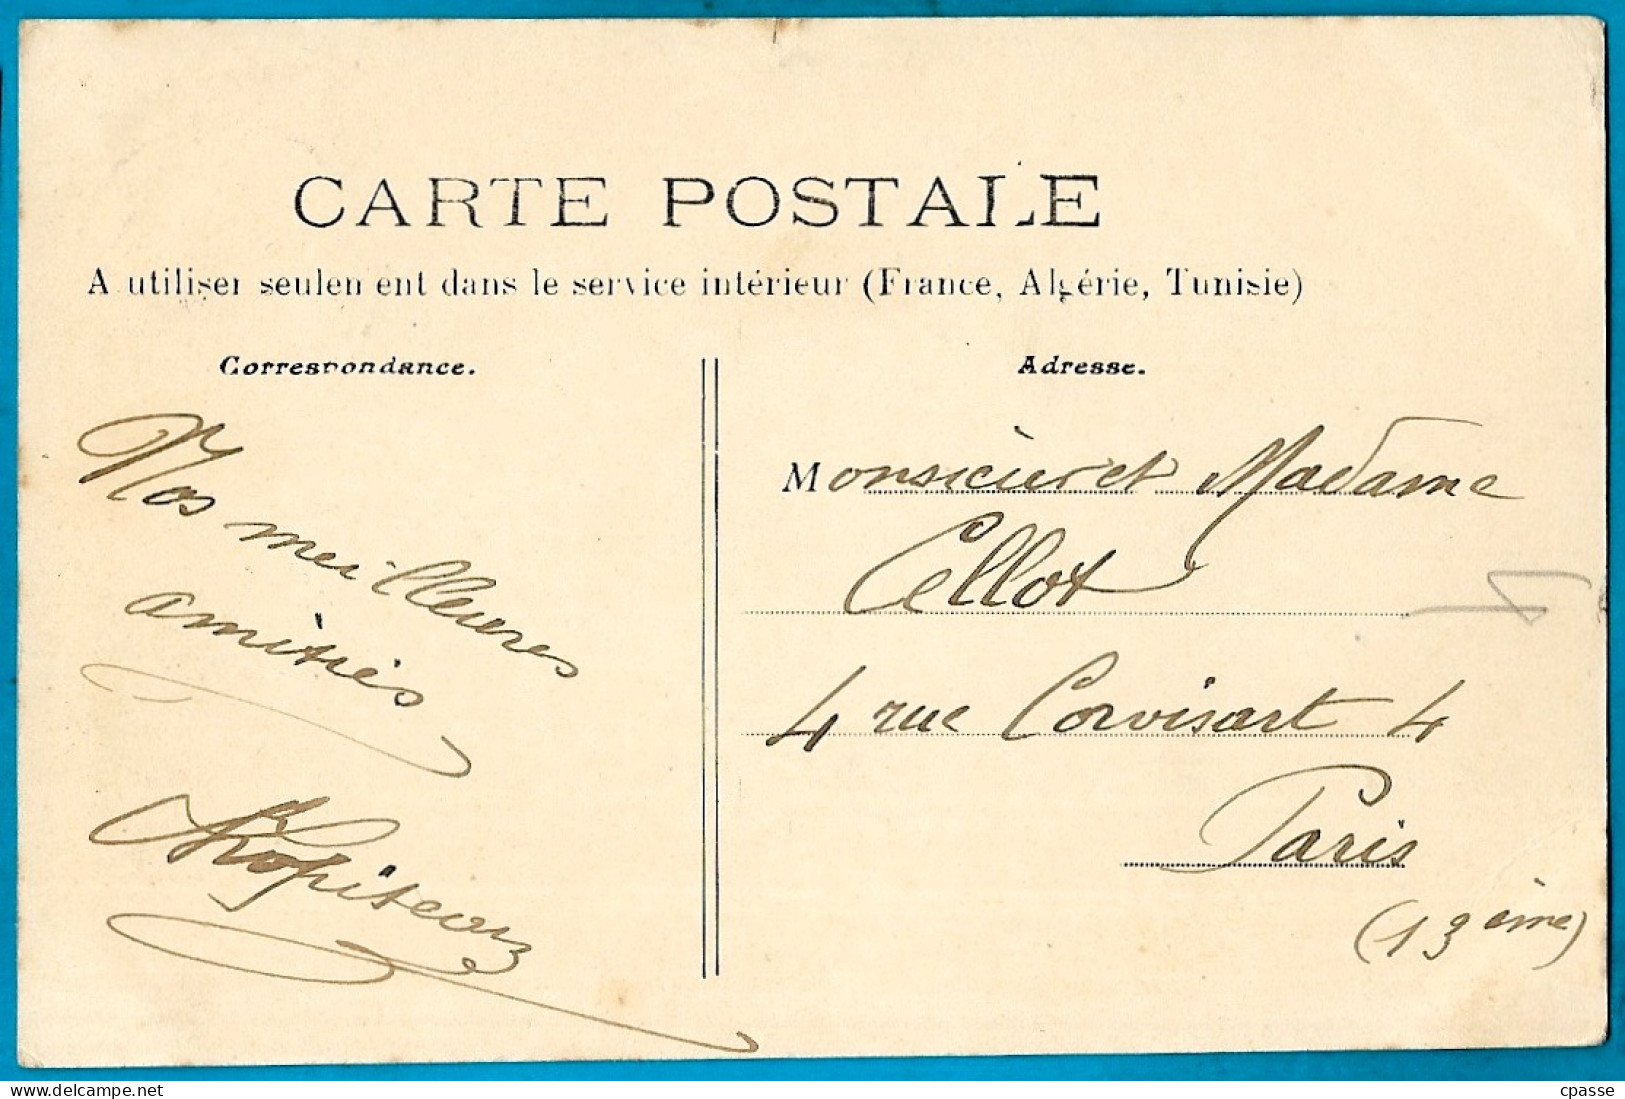 CARTE POSTALE
A utiliser seulement dans le service intérieur (France, Algérie, Tunisie)
Correspondance.
Nos meilleures
amitiés
Adresse.
Monsieur et Madame
Cellot
4 rue Corvisart 4
Paris
(13ème)
cpasse